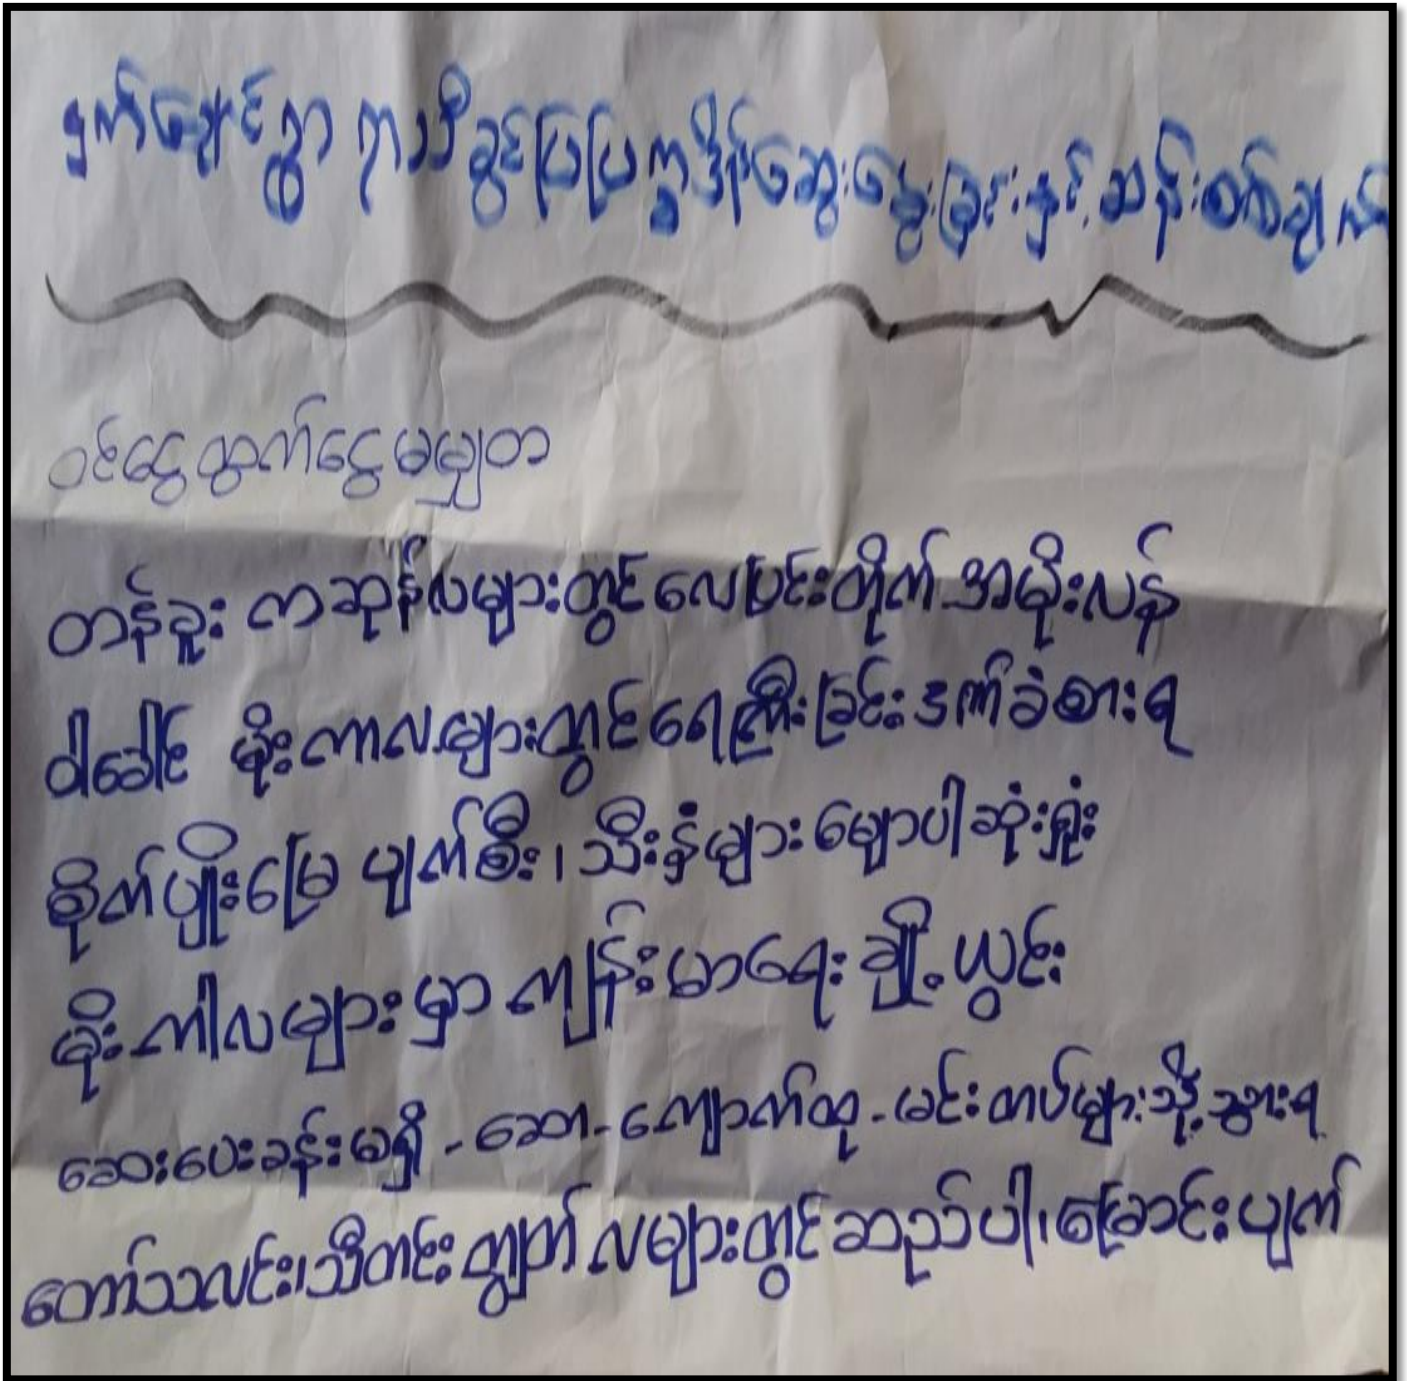 ရာသီခွင်ပြပြက္ခဒိန်ဆွေးနွေးခြင်းနှင့် ဆန်းစစ်ချက်
ဝင်ငွေထွက်ငွေမမျှတ
တန်ခူး ကဆုန်လများတွင် လေပြင်းတိုက် အမိုးလန်
ဝါခေါင် မိုးကာလများတွင် ရေကြီးခြင်းဒဏ်ခံစားရ
စိုက်ပျိုးမြေ ပျက်စီး၊ သီးနှံများ မျောပါဆုံးရှုံး
မိုးကါလများမှာ ကျန်းမာရေး ချို့ယွင်း
ဆေးပေးခန်းမရှိ - ဆော - ကျောက်ထု - မင်းတပ်များသို့သွားရ
တော်သလင်း၊ သီတင်းကျွတ် လများတွင် ဆည်ပါ၊ မြောင်းပျက်